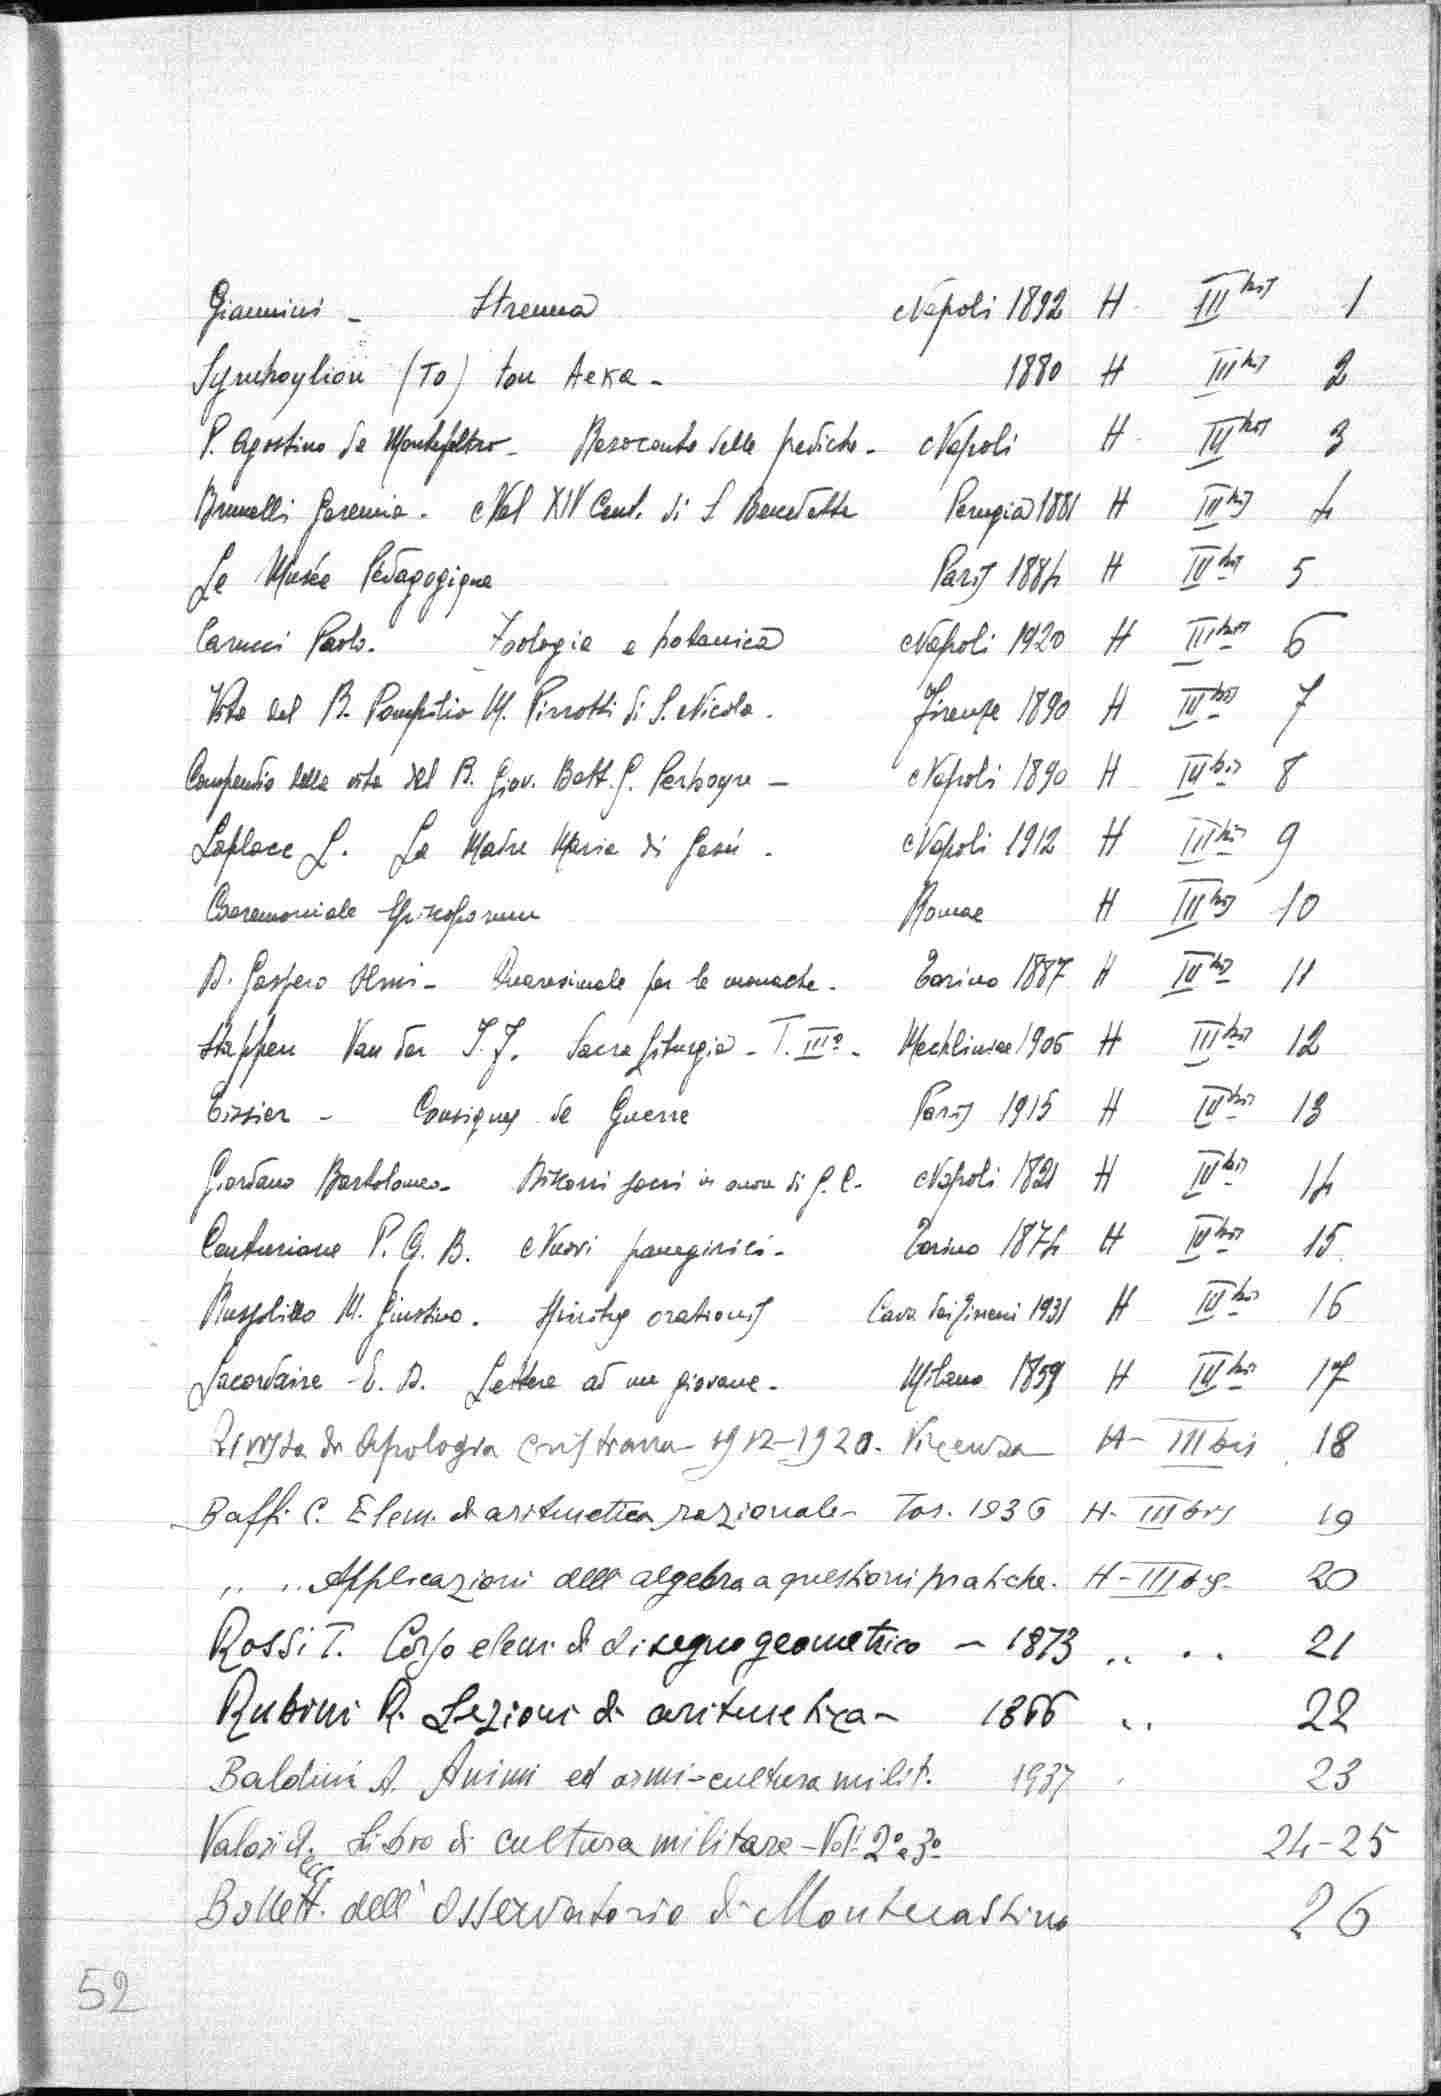 Giannini - Strenna Napoli 1892 H III bis 1
Symboylion (To) ton Aeka - 1880 H III bis 2
P. Agostino da Montefeltro - Resoconto delle prediche - Napoli H III bis 3
Brunelli Geremia. Nel XIV Cent. di S. Benedetto Perugia 1881 H III bis 4
Le Musée Pédagogique Paris 1884 H III bis 5
Carucci Paolo. Zoologia e botanica Napoli 1920 H III bis 6
Vita del B. Pompilio M. Pirrotti di S. Nicola. Firenze 1890 H III bis 7
Compendio della vita del B. Giov. Batt. G. Perboyre - Napoli 1890 H III bis 8
Laplace L. La Madre Maria di Gesù. Napoli 1912 H III bis 9
Caeremoniale Episcoporum Romae H III bis 10
D. Gaspero Olmi - Quaresimale per le monache. Torino 1887 H III bis 11
Stappen Van der J. F. Sacra Liturgia - T. III° - Mechliniae 1906 H III bis 12
Tissier - Consignes de Guerre Paris 1915 H III bis 13
Giordano Bartolomeo - Discorsi sacri in onore di G. C. - Napoli 1821 H III bis 14
Centurione P. G. B. Nuovi panegirici - Torino 1874 H III bis 15
M. Giustino. Spiritus orationis Cava dei Tirreni 1931 H III bis 16
Lacordaire E. D. Lettere ad un giovane - Milano 1859 H III bis 17
Rivista di Apologia cristiana - 1912-1920. Vicenza H - III bis 18
Baffi C. Elem. di aritmetica razionale - Tor. 1936 H - III bis 19
" " Applicazioni dell'algebra a questioni pratiche. H - III bis - 20
Rossi T. Corso elem. di disegno geometrico - 1873 " " 21
Rubini R. Lezioni di aritmetica - 1866 " 22
Baldini A. Animi ed armi - cultura milit. 1937 23
Valori A. ecc Libro di cultura militare - Vol. 2° e 3° 24-25
Bollett. dell'Osservatorio di Montecassino 26
52